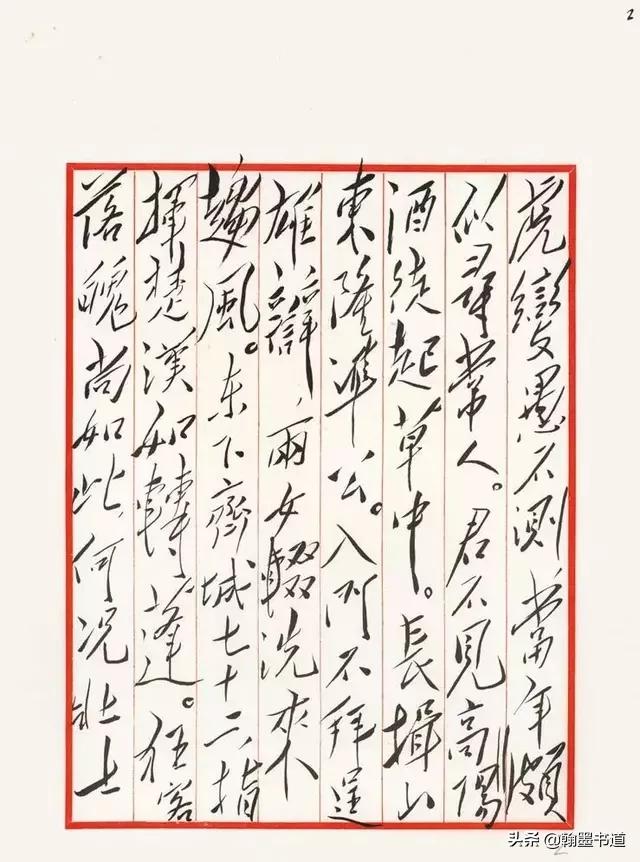 2
虎變愚不測當年頗
似尋常人。君不見高陽
酒徒起草中。長揖山
東隆準公。入门不拜逞
雄辯，兩女輟洗來
趨風。东下齊城七十二，指
揮楚漢如轉蓬。狂客
落魄尚如此，何况壯士
头条 @翰墨书道